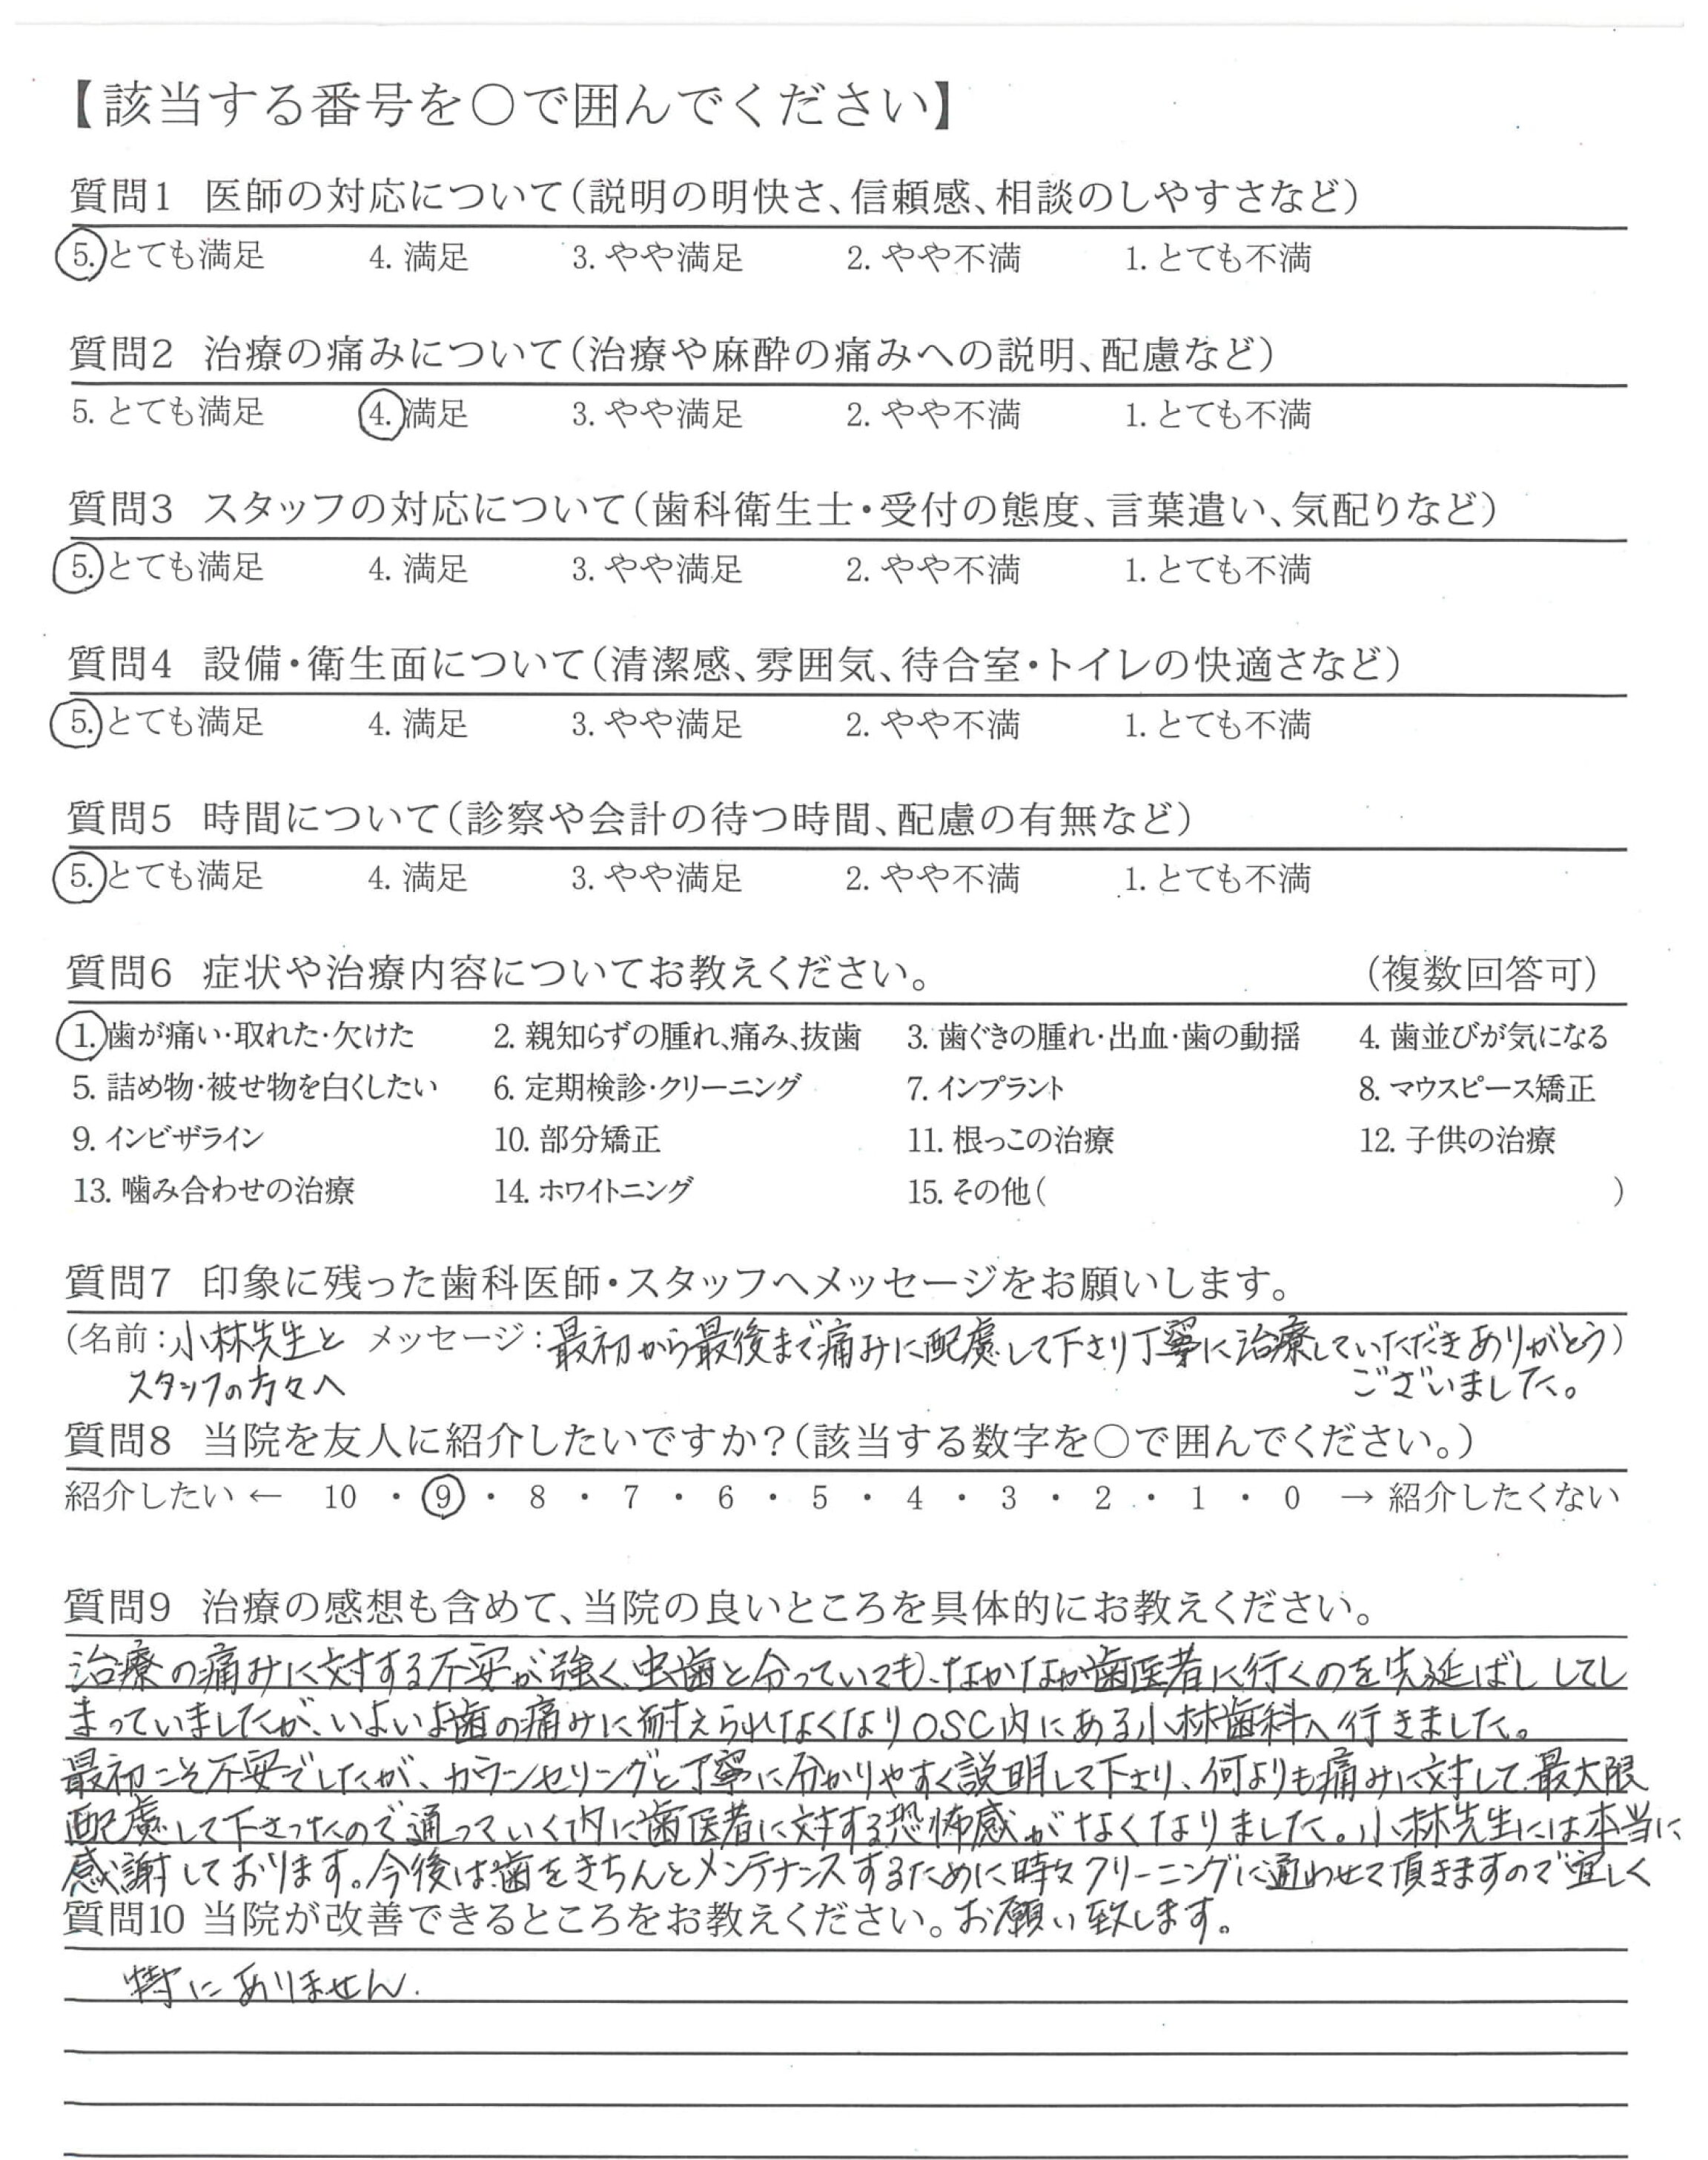 【該当する番号を○で囲んでください】
質問1 医師の対応について(説明の明快さ、信頼感、相談のしやすさなど)
5. とても満足 4. 満足 3. やや満足 2. やや不満 1. とても不満
質問2 治療の痛みについて(治療や麻酔の痛みへの説明、配慮など)
5. とても満足 4. 満足 3. やや満足 2. やや不満 1. とても不満
質問3 スタッフの対応について(歯科衛生士・受付の態度、言葉遣い、気配りなど)
5. とても満足 4. 満足 3. やや満足 2. やや不満 1. とても不満
質問4 設備・衛生面について(清潔感、雰囲気、待合室・トイレの快適さなど)
5. とても満足 4. 満足 3. やや満足 2. やや不満 1. とても不満
質問5 時間について(診察や会計の待つ時間、配慮の有無など)
5. とても満足 4. 満足 3. やや満足 2. やや不満 1. とても不満
質問6 症状や治療内容についてお教えください。 (複数回答可)
1. 歯が痛い・取れた・欠けた 2. 親知らずの腫れ、痛み、抜歯 3. 歯ぐきの腫れ・出血・歯の動揺 4. 歯並びが気になる
5. 詰め物・被せ物を白くしたい 6. 定期検診・クリーニング 7. インプラント 8. マウスピース矯正
9. インビザライン 10. 部分矯正 11. 根っこの治療 12. 子供の治療
13. 噛み合わせの治療 14. ホワイトニング 15. その他( )
質問7 印象に残った歯科医師・スタッフへメッセージをお願いします。
(名前:小林先生と メッセージ:最初から最後まで痛みに配慮して下さり丁寧に治療していただきありがとう)
スタッフの方々へ ございました。
質問8 当院を友人に紹介したいですか?(該当する数字を○で囲んでください。)
紹介したい ← 10 ・ 9 ・ 8 ・ 7 ・ 6 ・ 5 ・ 4 ・ 3 ・ 2 ・ 1 ・ 0 → 紹介したくない
質問9 治療の感想も含めて、当院の良いところを具体的にお教えください。
治療の痛みに対する不安が強く、虫歯と分っていても、なかなか歯医者に行くのを先延ばししてし
まっていましたが、いよいよ歯の痛みに耐えられなくなりOSC内にある小林歯科へ行きました。
最初こそ不安でしたが、カウンセリングと丁寧に分かりやすく説明して下さり、何よりも痛みに対して最大限
配慮して下さったので通っていく内に歯医者に対する恐怖感がなくなりました。小林先生には本当に
感謝しております。今後は歯をきちんとメンテナンスするために時々クリーニングに通わせて頂きますので宜しく
質問10 当院が改善できるところをお教えください。お願い致します。
特にありません.